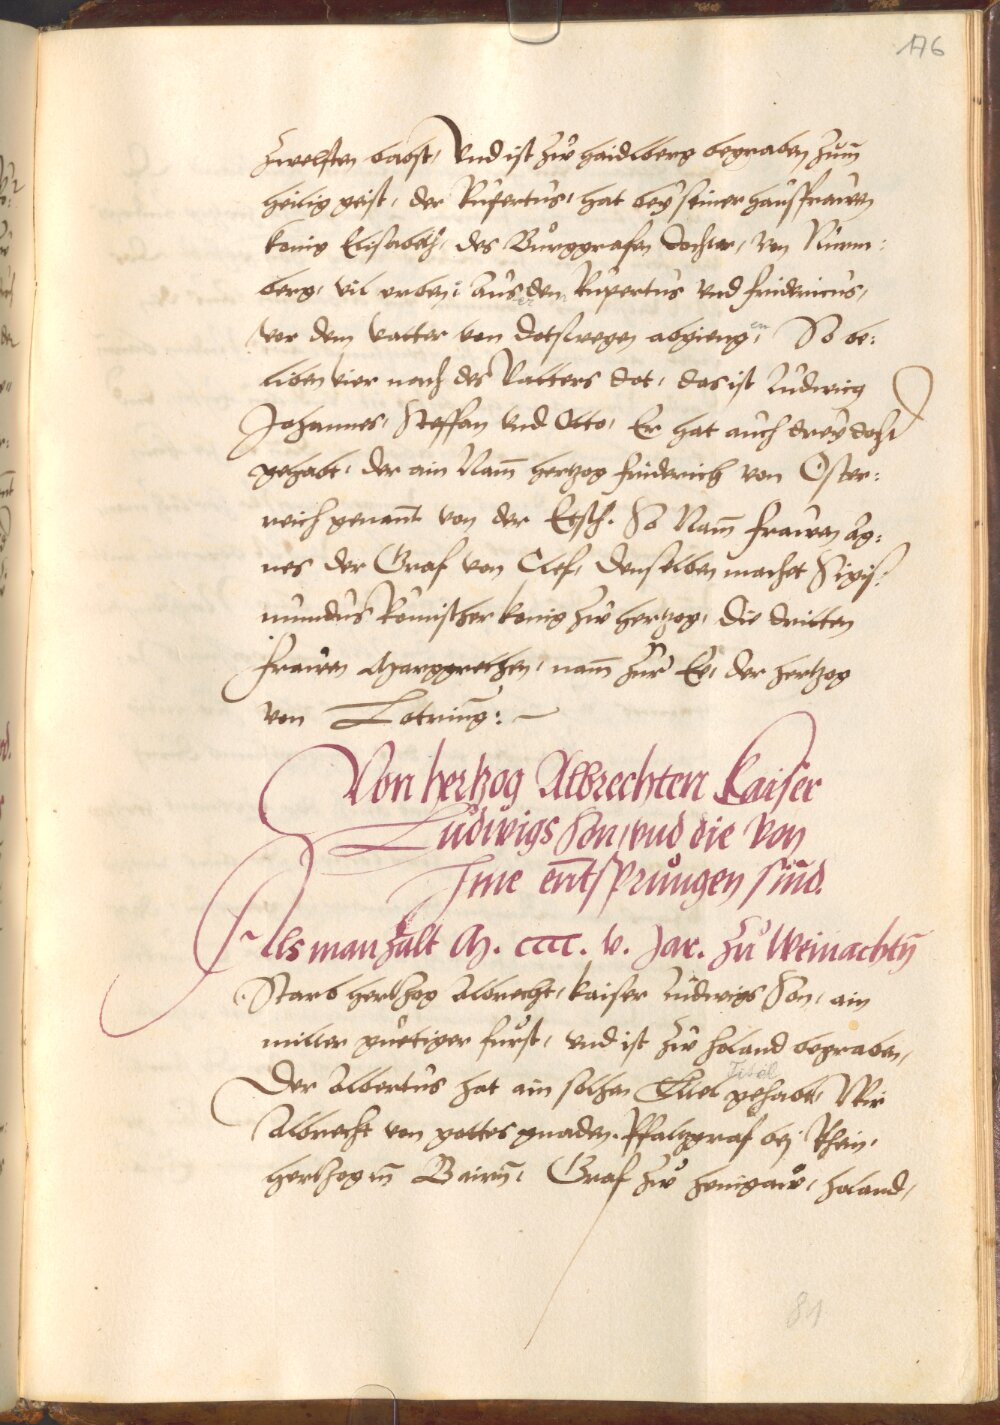 176
zwelften babst, Vnd ist zẘ haidlberg begraben zum̄
heilig geist, der Rupertus, hat bey seiner hausfrawen
konig Elisabeth, des Bůrggrafen dochter, von Nürm:
berg, vil erben, aus den Rupertus vnd fridericus,
vor dem vatter von dotswegen abgieng, So be:
liben vier nach des Vatters dot, das ist Ludwicg
Johannes, Steffan vnd Otto, Er hat auch drey docht
gehabt, der ain Nam̄ hertzog friderich von Öster:
reich genant von der Etsch. So Nam̄ frawen ag:
nes der Graf von Clef, denselben machet Sigis:
mundus Römischer konig zẘ hertzog, die dritten
frawen Margrethen, nam̄ zur Ee, der hertzog
von Lotring:
Von hertzog Albrechten Kaiser
Ludwigs Son, vnd die Von
Ime entsprůngen sind.
Als man zalt M. cccc. v. Jar. Zu Weinachtn̄
Starb hertzog Albrecht, kaiser Ludwigs Son, ain
milter guetiger furst, vnd ist zẘ holand begraben,
Titel
Der Albertus hat ain solhen Titel gehabt, Wir
Albrecht von gottes gnaden. Pfaltzgraf bej Rhein,
hertzog in Bairn̄, Graf zẘ henigaẘ, holand,
81